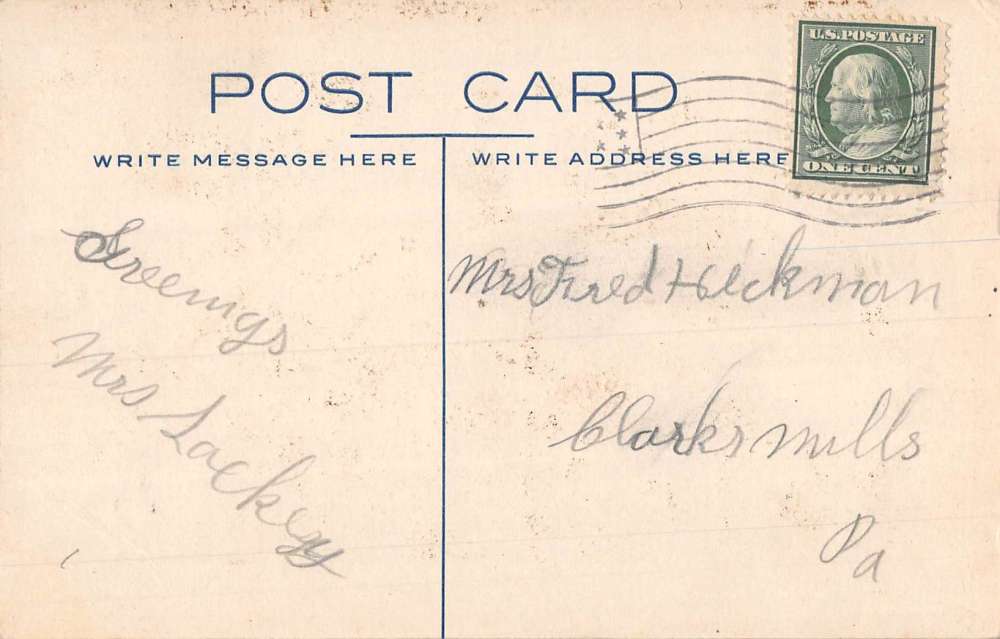 POST CARD
WRITE MESSAGE HERE
WRITE ADDRESS HERE
U.S. POSTAGE
ONE CENT
Greenigs
Mrs Lackey
Mrs Fred Heckman
Clarks mills
Pa